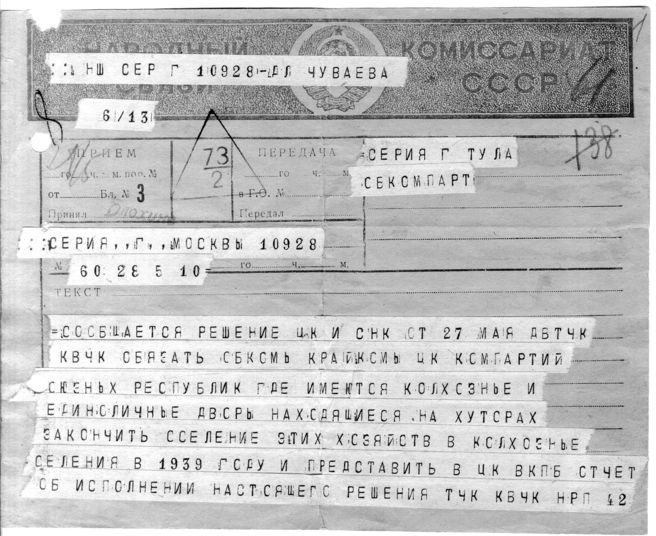 НАРОДНЫЙ КОМИССАРИАТ
СВЯЗИ СССР
НШ СЕР Г 10928-ДЛ ЧУВАЕВА
6/13
ПРИЕМ
го ч. м. пос. №
от Бл. № 3
Принял
73/2
ПЕРЕДАЧА
го ч. м.
в Г.О. №
Передал
=СЕРИЯ Г ТУЛА
СБКОМПАРТ
138
=СЕРИЯ,,Г,,МОСКВЫ 10928
№ 60 28 5 10= го ч. м.
ТЕКСТ
=СООБЩАЕТСЯ РЕШЕНИЕ ЦК И СНК СТ 27 МАЯ ДВТЧК
КВЧК ОБЯЗАТЬ СБКСМЬ КРАЙКСМЬ ЦК КСМПАРТИЙ
СЮЗНЬХ РЕСПУБЛИК ГДЕ ИМЕЮТСЯ КОЛХСЗНЬЕ И
ЕДИНОЛИЧНЬЕ ДВСРЬ НАХСДЯЩИЕСЯ НА ХУТСРАХ
ЗАКОНЧИТЬ ССЕЛЕНИЕ ЭТИХ ХСЗЯЙСТВ В КСЛХОЗНЬЕ
СЕЛЕНИЯ В 1939 ГСДУ И ПРЕДСТАВИТЬ В ЦК ВКПБ СТЧЕТ
ОБ ИСПОЛНЕНИИ НАСТСЯЩЕГС РЕШЕНИЯ ТЧК КВЧК НРП 42